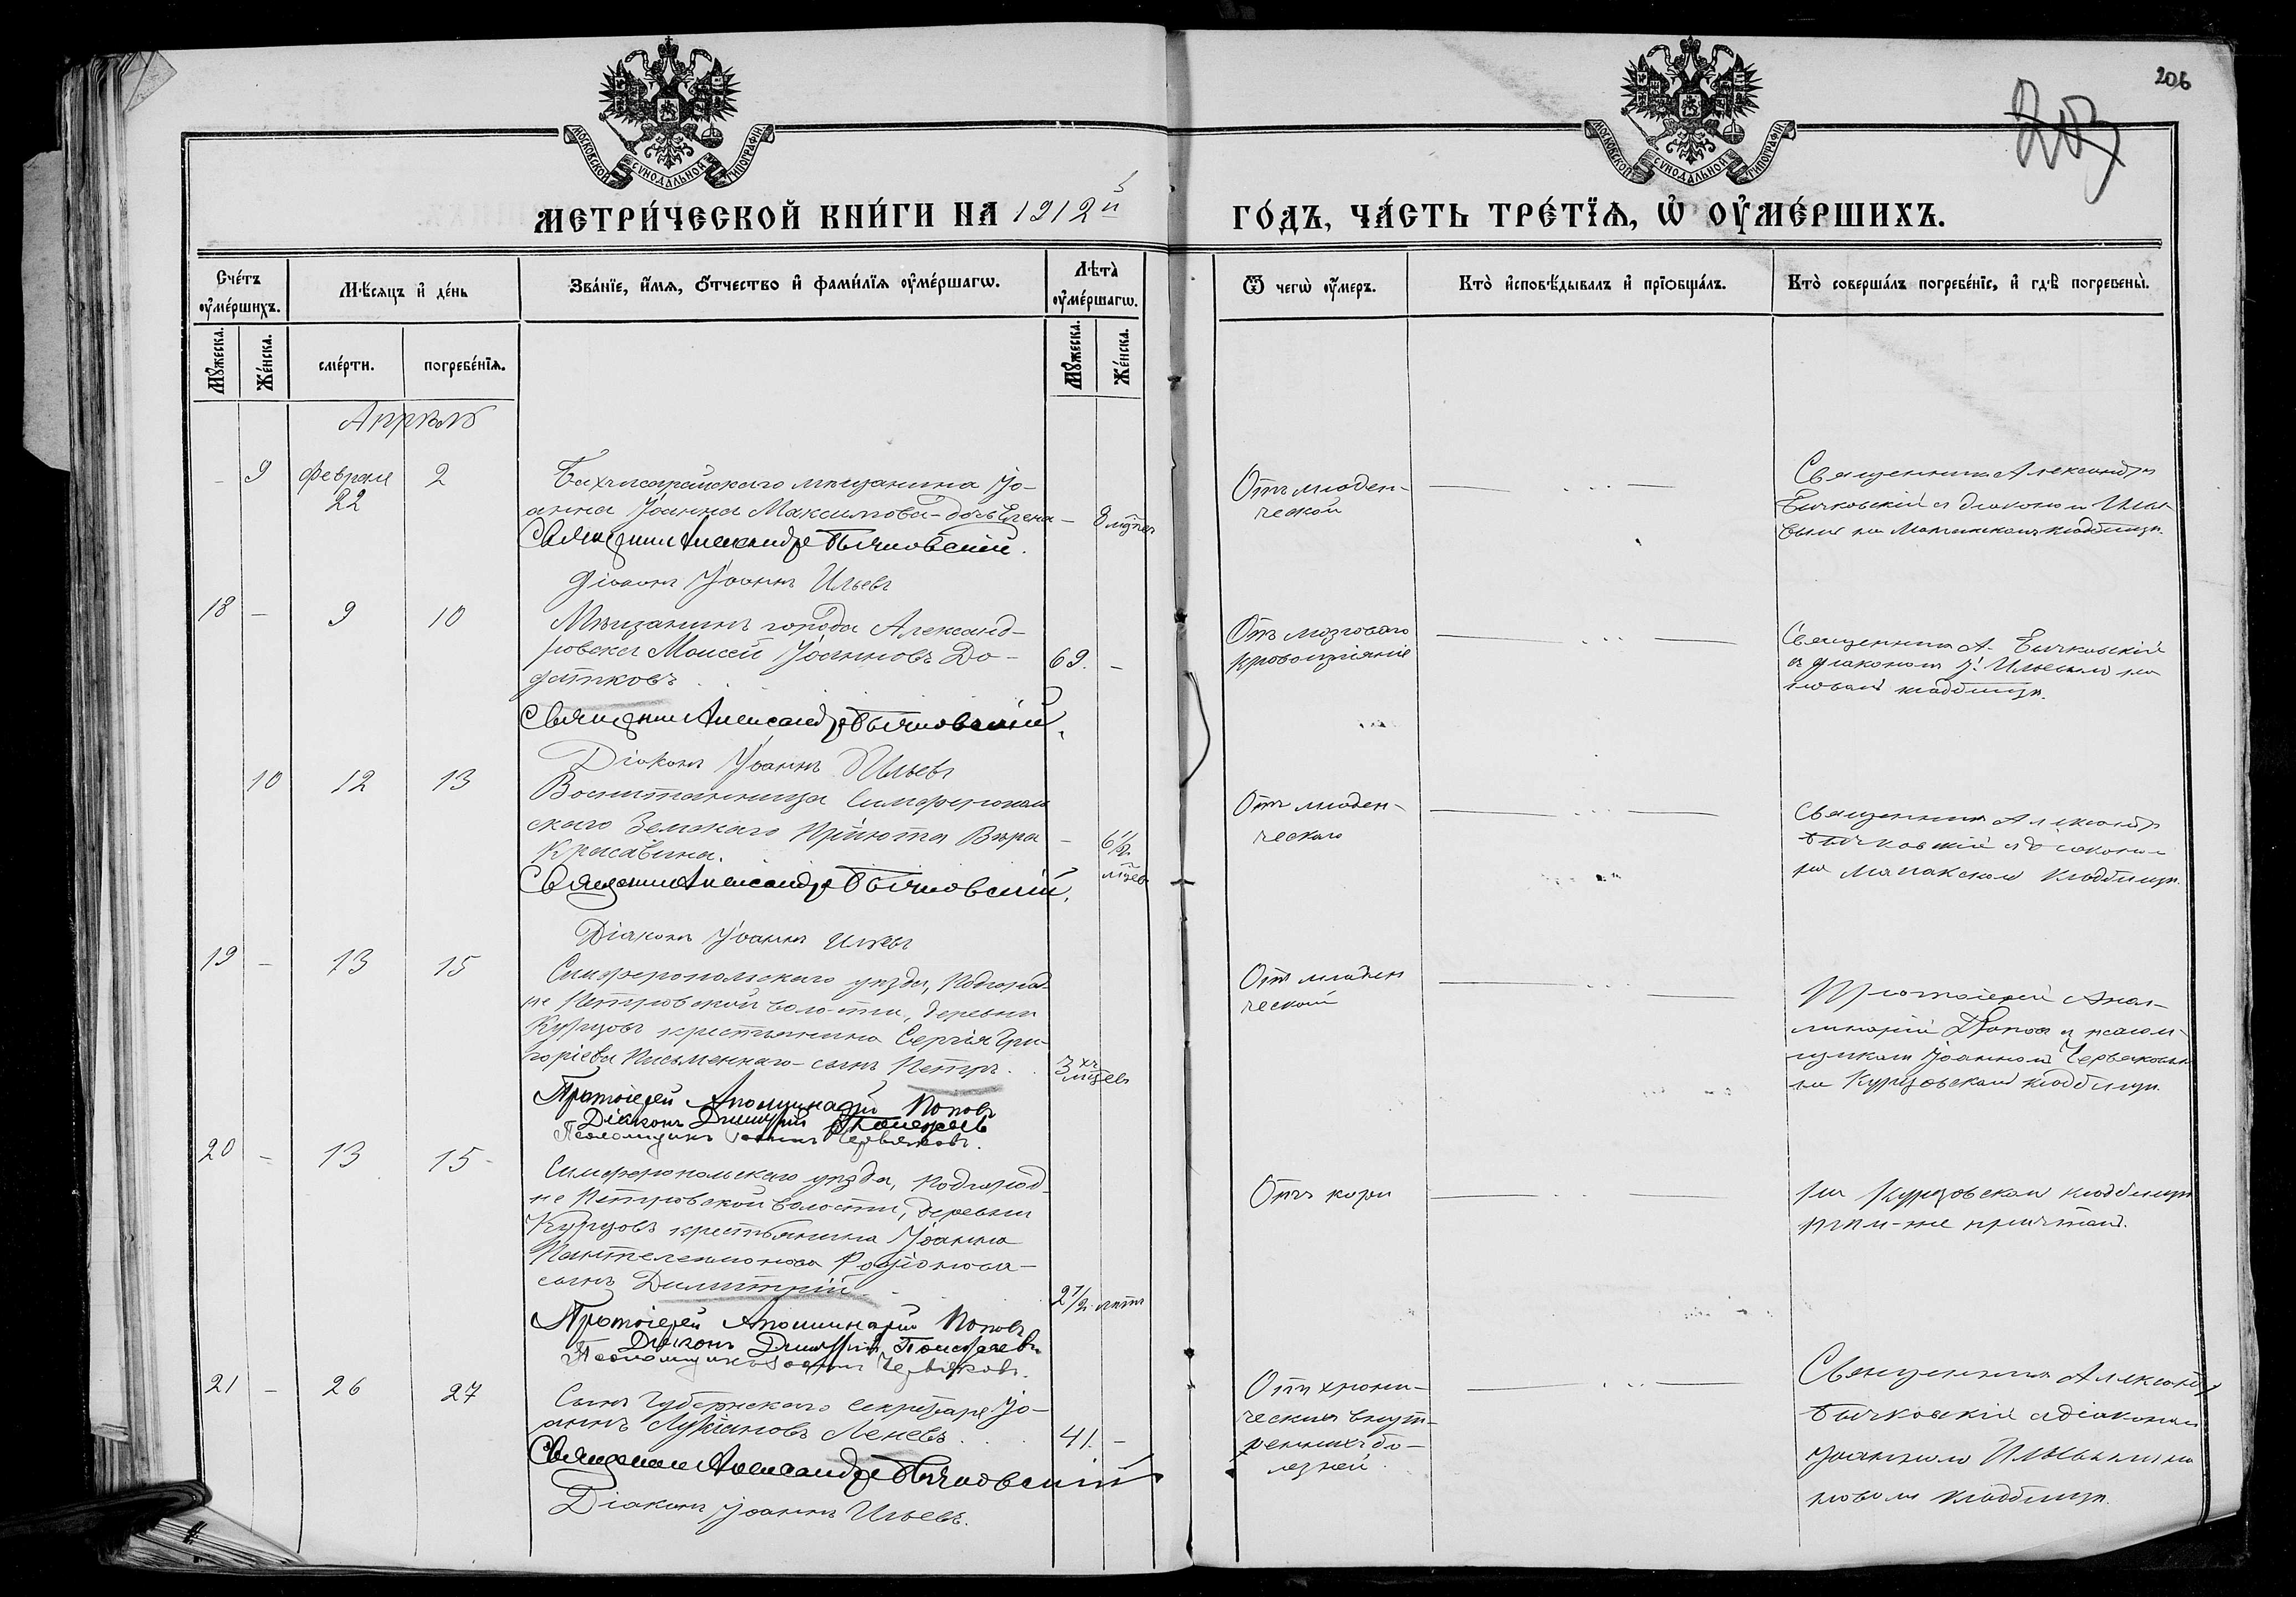 206
203
МОСКОВСКОЙ СѴНОДАЛЬНОЙ ТИПОГРАФІИ
МОСКОВСКОЙ СѴНОДАЛЬНОЙ ТИПОГРАФІИ
МЕТРИ́ЧЕСКОЙ КНИ́ГИ НА 1912 й
ГО́ДЪ, ЧА́СТЬ ТРЕ́ТЇѦ, Ѡ҆ ОУ҆МЕ́РШИХЪ.
Сче́тъ оу҆ме́ршихъ.
Мѣ́сяцъ и҆ де́нь
Зва́нїе, и҆́мѧ, ѻ҆́тчество и҆ фами́лїѧ оу҆ме́ршагѡ.
Лѣта̀ оу҆ме́ршагѡ.
Ѿ чегѡ̀ оу҆́меръ.
Кто̀ и҆сповѣ́дывалъ и҆ прїѻбща́лъ.
Кто̀ соверша́лъ погребе́нїе, и҆ гдѣ̀ погребены̀.
Мꙋ́жеска.
Же́нска.
сме́рти.
погребе́нїѧ.
Мꙋ́жеска.
Же́нска.
Апрѣль
- 9 Февраля 22 2
Бахчисарайскаго мѣщанина Іо-
анна Іоанна Максимова - дочь Елена -
8 мѣсяц
Священник Александръ Бычковскій.
Діаконъ Іоаннъ Ильевъ
Отъ младен-
ческой
Священникъ Александръ
Бычковскій съ діакономъ Илье-
вымъ на кладбищѣ.
18 - 9 10
Мѣщанинъ города Александ-
ровска Моисей Іоанновъ До-
датковъ
69. -
Священник Александръ Бычковскій.
Діаконъ Іоаннъ Ильевъ
Отъ мозгового
кровоизліянія
Священникъ А. Бычковскій
съ діакономъ І. Ильевымъ на
новомъ кладбищѣ.
10 12 13
Воспитанница Симферополь
скаго Земскаго Пріюта Вѣра
Красавина.
- 6 1/2 мѣсев
Священник Александръ Бычковскій.
Діаконъ Іоаннъ Ильевъ
Отъ младен-
ческаго
Священникъ Александръ
Бычковскій съ діакономъ
на кладбищѣ.
19 - 13 15
Симферопольскаго уѣзда, Подгород-
не Петровской волости, деревни
Курцовъ крестьянина Сергія Гри-
горіева Письменнаго - сынъ Петръ.
3 хъ мѣсев
Протоіерей Аполлинарій Поповъ
Діаконъ Димитрій
Псаломщикъ Іоаннъ Червяковъ.
Отъ младен
ческой
Протоіерей Апол-
линарій Поповъ съ псалом-
щикомъ Іоанномъ Червяковымъ
на Курцовскомъ кладбищѣ.
20 - 13 15 -
Симферопольскаго уѣзда, Подгород-
не Петровской волости, деревни
Курцовъ крестьянина Іоанна
Пантелеимонова Родіонова -
сынъ Димитрій.
2 1/2 лѣтъ
Протоіерей Аполлинарій Поповъ
Діаконъ Димитрій
Псаломщикъ Іоаннъ Червяковъ.
Отъ кори
На Курцовскомъ кладбищѣ
тѣм-же причтомъ.
21 - 26 27
Сынъ Губернскаго Секретаря Іо-
аннъ Лукіановъ Леневъ
41. -
Священник Александръ Бычковскій
Діаконъ Іоаннъ Ильевъ.
Отъ хрони-
ческихъ внут-
реннихъ бо-
лезней.
Священникъ Александръ
Бычковскій съ діакономъ
Іоанномъ Ильевымъ на
новомъ кладбищѣ.